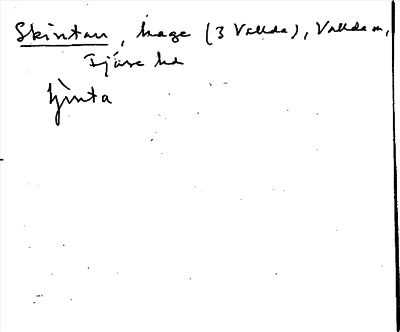 Skintan, hage (3 Vallda), Vallda sn,
Fjäre hd